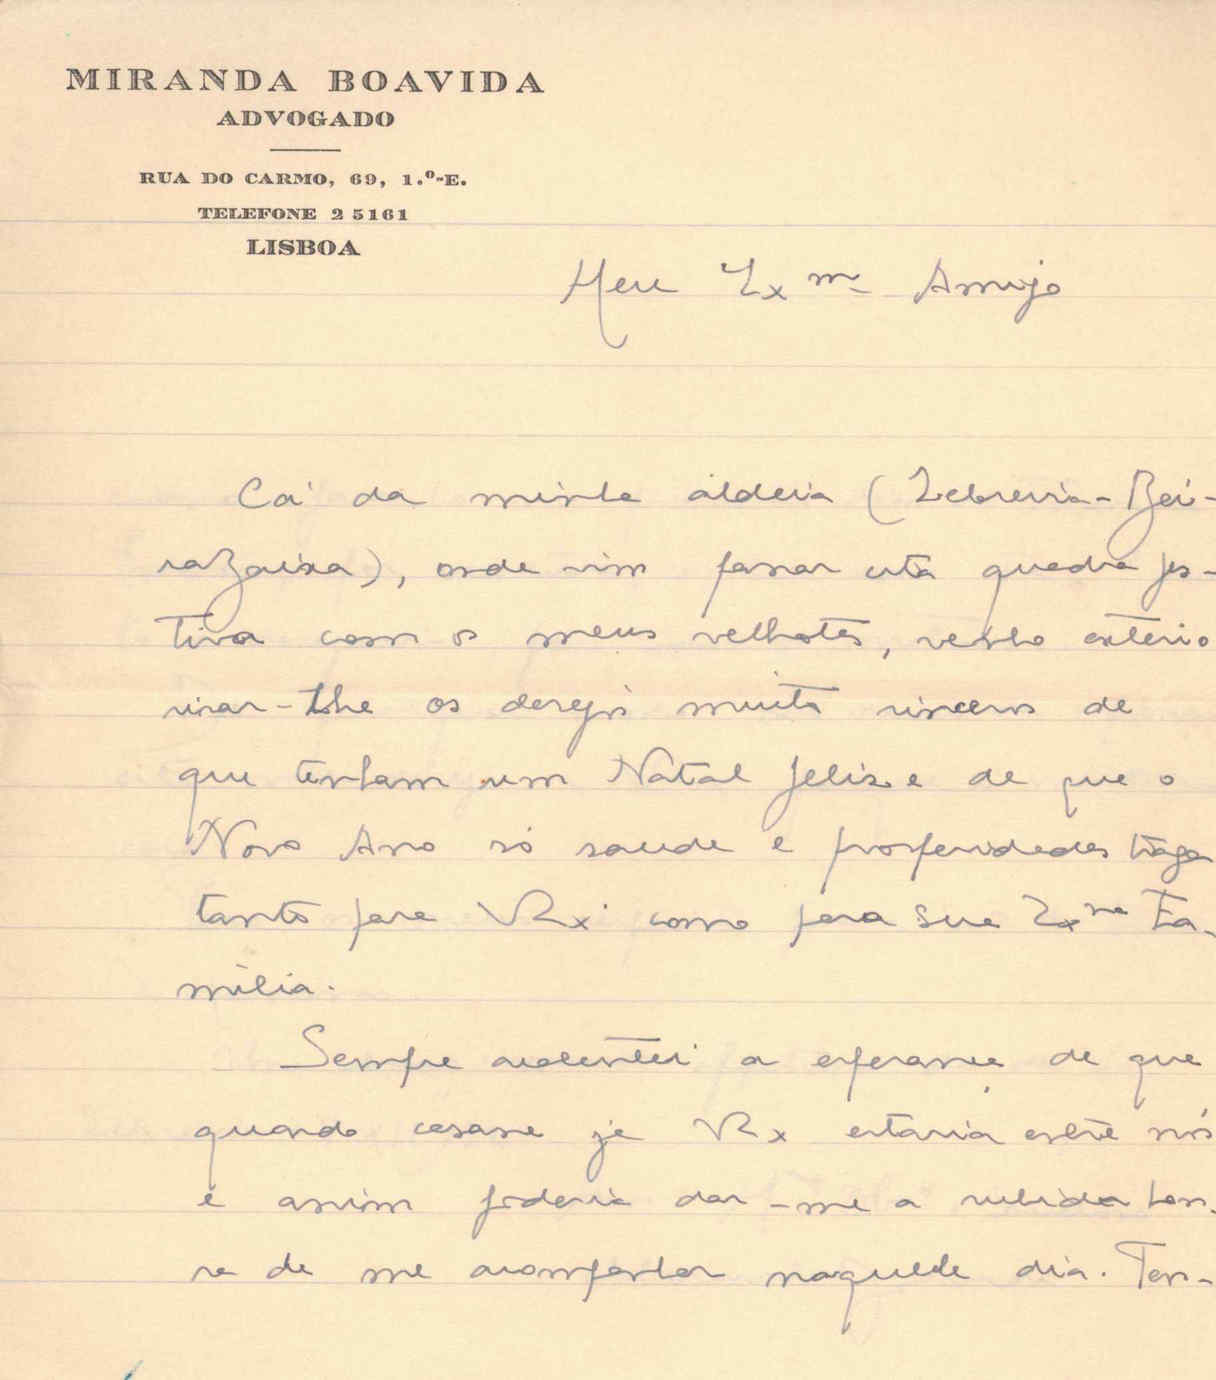 MIRANDA BOAVIDA
ADVOGADO
RUA DO CARMO, 69, 1.º-E.
TELEFONE 2 5161
LISBOA
Meu Exmo Amigo
Cá da minha aldeia (Zebreira - Bei-
ra Baixa), onde vim passar esta quadra fes-
tiva com os meus velhotes, venho exterio
risar-lhe os desejos muito sinceros de
que tenham um Natal feliz e de que o
Novo Ano só saude e prosperidades traga
tanto para VEx. como para sua Exma Fa-
milia.
Sempre acalentei a esperança de que
quando casasse já VEx estaria entre nós
e assim poderia dar-me a subida hon-
ra de me acompanhar naquele dia. Ten-